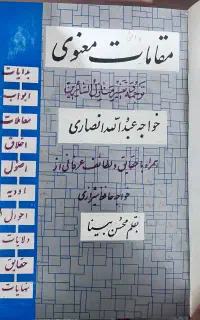 مقامات معنوی
ترجمه و تفسیر منازل السائرین
خواجه عبدالله انصاری
همراه با حقایق و لطائف عرفانی از
خواجه حافظ شیرازی
بقلم محسن بینا
بدایات
ابواب
معاملات
اخلاق
اصول
اودیه
احوال
ولایات
حقایق
نهایات